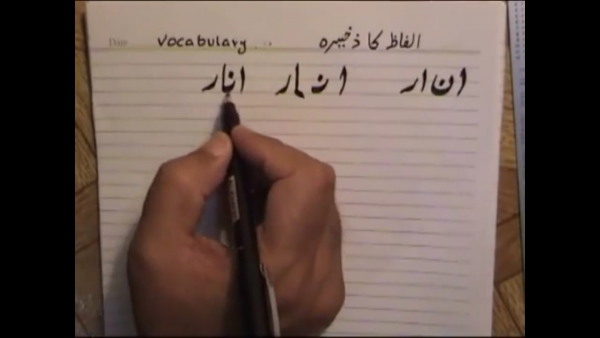 Date Vocabulary الفاظ کا ذخیرہ
ا ن ا ر ا نـ ـا ر انار